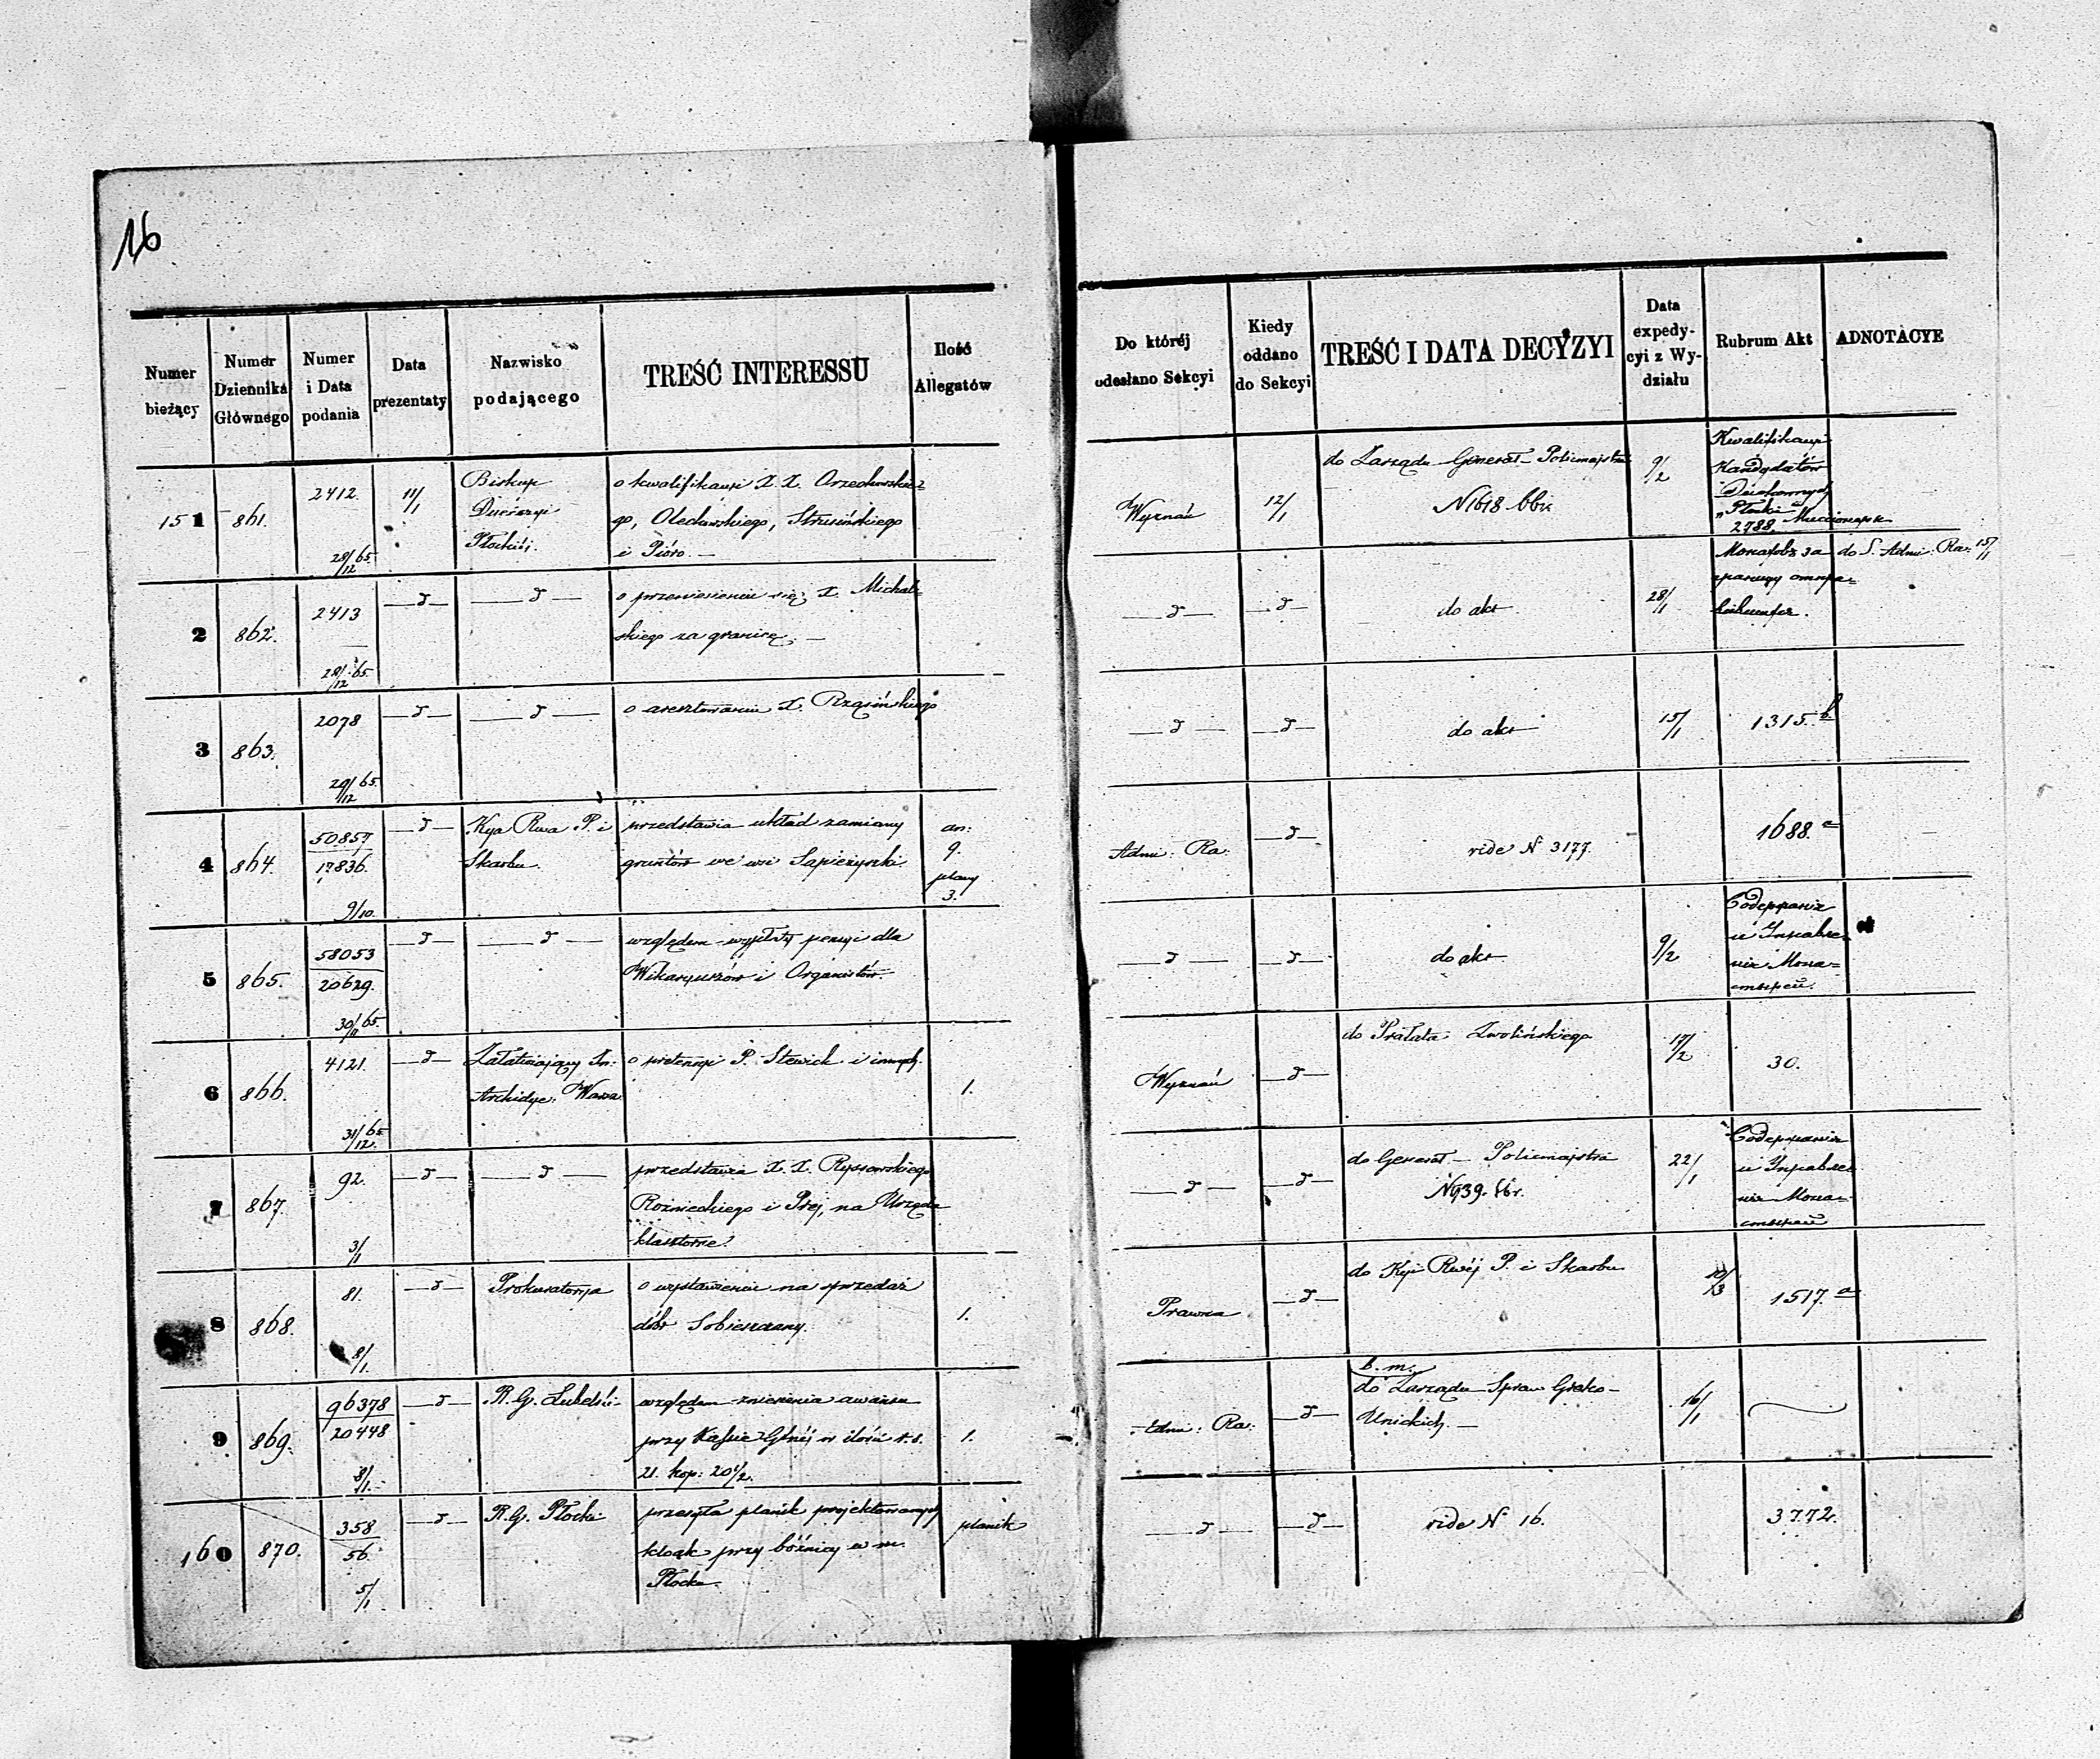 16
Numer bieżący
Numer Dziennika Głównego
Numer i Data podania
Data prezentaty
Nazwisko podającego
TREŚĆ INTERESSU
Ilość Allegatów
Do której odesłano Sekcyi
Kiedy oddano do Sekcyi
TREŚĆ I DATA DECYZYI
Data expedycyi z Wydziału
Rubrum Akt
ADNOTACYE
151
861.
2412.
28/12 65.
11/1
Biskup
Płockiej.
o kwalifikacyi X. X. Orzechowskie=
go, Olechowskiego, Strusińskiego
i Pióro. —
Wyznań
12/1
do Zarządu Generał-Policmajstra
N 1618 bbis
9/2
Kwalifikacyi
Kandydatów
Duchownych
2788.
2
862.
2413
28/12 65.
— d —
— d —
o przeniesieniu się X. Michal=
skiego za granicę. —
— d —
— d —
do akt
28/1
Монахов за
границу
do S. Adm: Ra: 15/1
3
863.
2078
29/12 65.
— d —
— d —
o aresztowaniu X. Rzasińskiego
— d —
— d —
do akt
15/1
1315. b.
4
864.
50857
17836.
9/10.
— d —
Kya Rwa P. i
Skarbu
przedstawia układ zamiany
gruntów we wsi Sapieżyszki
an:
9.
plany
3.
Adm: Ra:
— d —
vide N 3177.
1688. a
5
865.
58053
20629.
30/11 65.
— d —
— d —
względem wypłaty pensyi dla
Wikaryuszów i Organistów.
— d —
— d —
do akt
9/2
Содержание
и Управле=
ние Мона=
стырей.
6
866.
4121.
31/12 65.
— d —
Załatwiający In:
Archidye: Warsza
o pretensyi P. Stewich i innych.
1.
Wyznań
— d —
do Prałata Zwolińskiego
17/2
30.
7
867.
92.
3/1
— d —
— d —
przedstawia X. X. Ryszowskiego
Rożnieckiego i Prej, na Urzęda
klasztorne.
— d —
— d —
do Generał-Policmajstra
N 939.
22/1
Содержание
и Управле
ние Мона=
стырей
8
868.
81.
8/1.
— d —
Prokuratorya
o wystawieniu na sprzedaż
dóbr Sobieszczany.
1.
Prawna
— d —
do Kyi Rwéj P. i Skarbu
10/3
1517. a
9
869.
96378
20448
8/1.
— d —
R. G. Lubelski
względem zniesienia awansu
przy Kassie Głnéj w ilości r. s.
21. kop: 20 1/2.
1.
Adm: Ra:
— d —
b. m.
do Zarządu Spraw Greko-
Unickich. —
16/1
160
870.
358
56.
5/1.
— d —
R. G. Płocki
przesyła planik projektowanych
kloak przy bóżnicy w m.
Płocku.
planik
— d —
— d —
vide N 16.
3772.